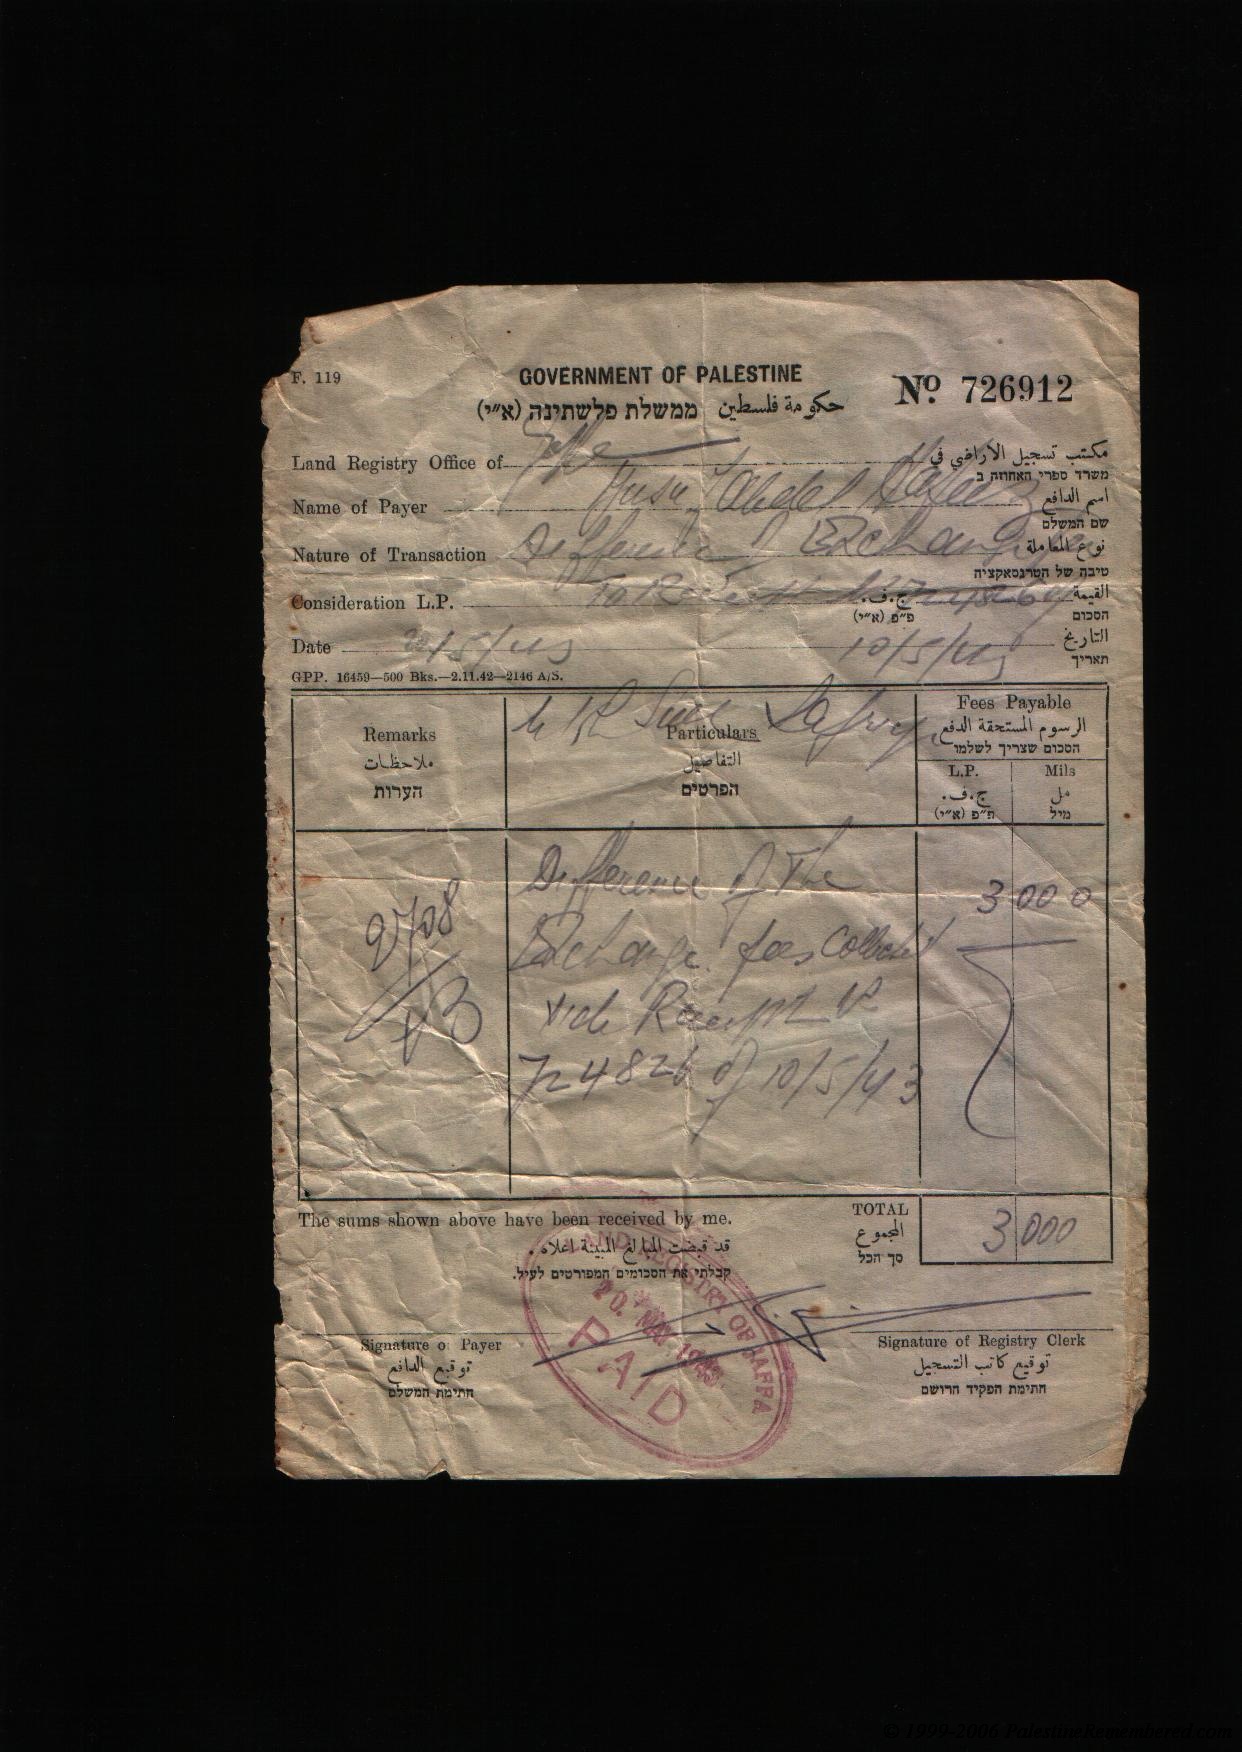 F. 119
GOVERNMENT OF PALESTINE
Nº 726912
ממשלת פלשתינה (א״י) حكومة فلسطين
Land Registry Office of Jaffa مكتب تسجيل الاراضي في
משרד ספרי האחוזה ב
Name of Payer Abdel Hafeez اسم الدافع
שם המשלם
Nature of Transaction Exchange نوع المعاملة
טיבה של הטרנסאקציה
Consideration L.P. ج.ف. القيمة
פ״פ (א״י) הסכום
Date 20/5/43 10/5/43 التاريخ
תאריך
GPP. 16459—500 Bks.—2.11.42—2146 A/S.
Remarks
ملاحظات
הערות
Particulars
التفاصيل
הפרטים
Fees Payable
الرسوم المستحقة الدفع
הסכום שצריך לשלמו
L.P. Mils
ج.ف. مل
פ״פ (א״י) מיל
Difference of The 3 000
Exchange fees Collected
vide Receipt
724826 of 10/5/43
The sums shown above have been received by me.
قد قبضت المبالغ المبينة اعلاه.
קבלתי את הסכומים המפורטים לעיל.
TOTAL 3 000
المجموع
סך הכל
LAND REGISTRY OF JAFFA
20. MAY 1943
PAID
Signature o Payer
توقيع الدافع
חתימת המשלם
Signature of Registry Clerk
توقيع كاتب التسجيل
חתימת הפקיד הרושם
© 1999-2006 PalestineRemembered.com